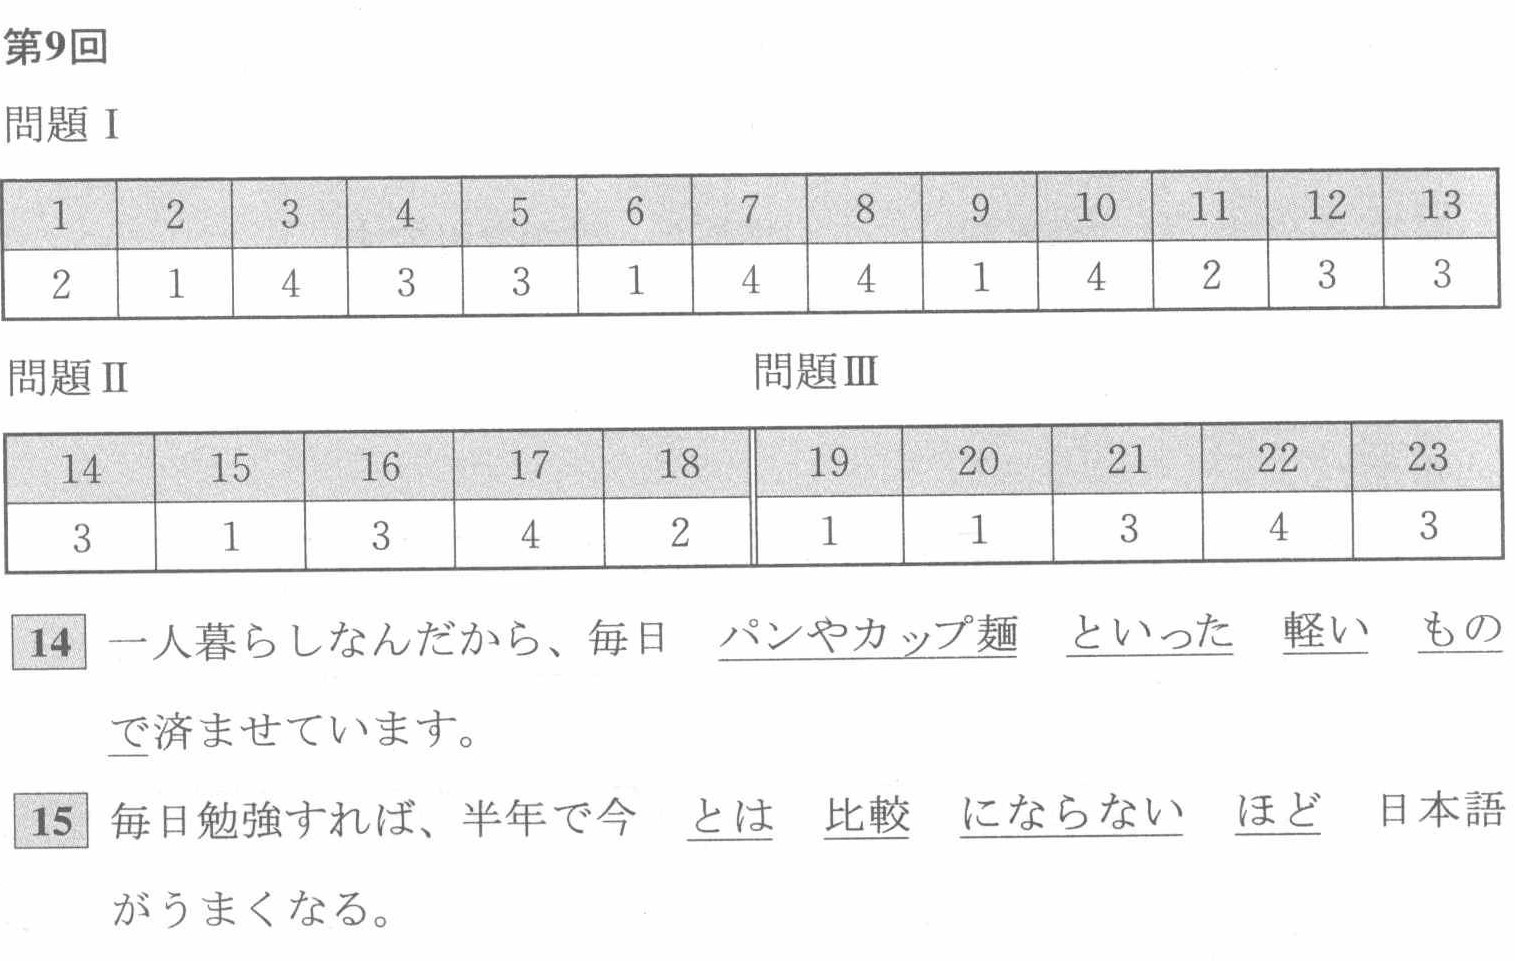 第9回
問題Ⅰ
1 2 3 4 5 6 7 8 9 10 11 12 13
2 1 4 3 3 1 4 4 1 4 2 3 3
問題Ⅱ 問題Ⅲ
14 15 16 17 18 19 20 21 22 23
3 1 3 4 2 1 1 3 4 3
14 一人暮らしなんだから、毎日 パンやカップ麺 といった 軽い もの
で済ませています。
15 毎日勉強すれば、半年で今 とは 比較 にならない ほど 日本語
がうまくなる。